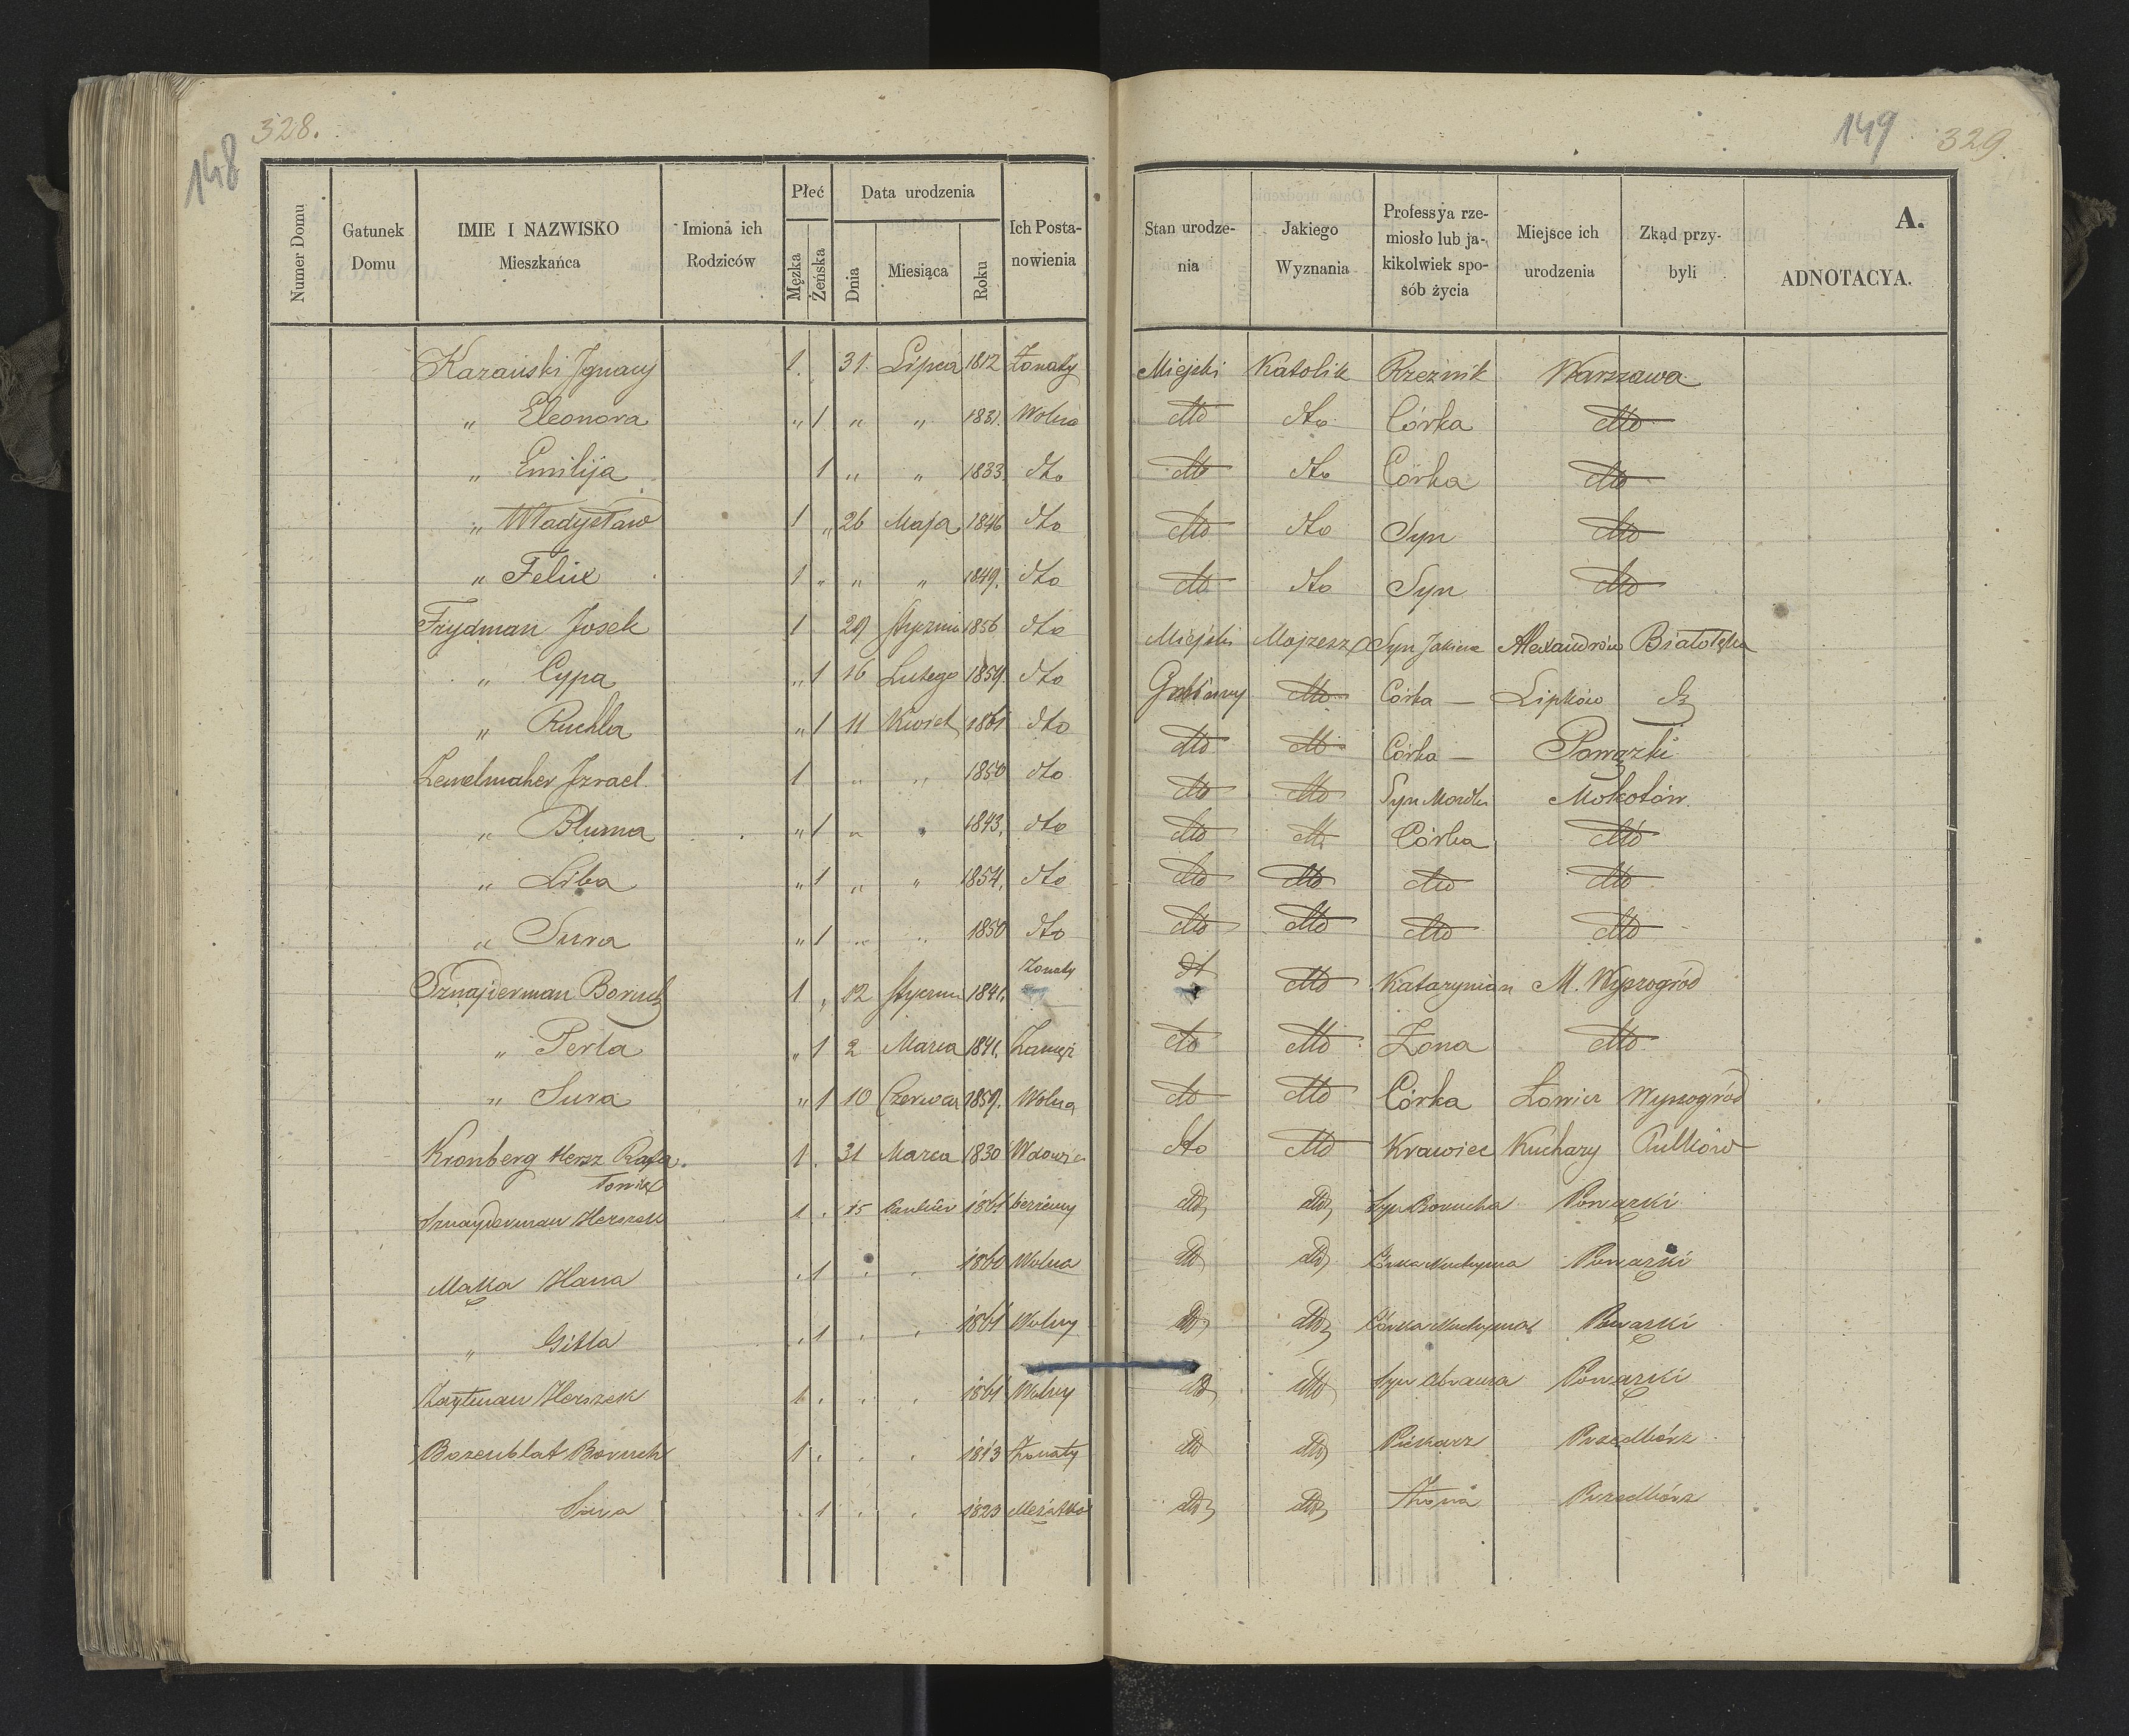 328.
148
Numer Domu
Gatunek Domu
IMIE I NAZWISKO Mieszkańca
Imiona ich Rodziców
Płeć
Męzka
Żeńska
Data urodzenia
Dnia
Miesiąca
Roku
Ich Postanowienia
Kazański Jgnacy 1. 31. Lipca 1812 Żonaty
" Eleonora " 1 " " 1831. Wolna
" Emilija 1 " " 1833. dto
" Władysław 1 " 26 Maja 1846 dto
" Felix 1 " " " 1849. dto
Frydman Josek 1 29 Stycznia 1856 dto
" Cypa " 1 16 Lutego 1859. dto
" Ruchla " 1 11 Kwiet 1861 dto
Lewelmaher Jzrael 1 " " 1850 dto
" Bluma " 1 " " 1843. dto
" Liba " 1 " " 1854. dto
" Sura " 1 " " 1850 dto
Sznajderman Boruch 1 " 12 Styczni 1841. Żonaty
" Perla " 1 2 Marca 1841. Zamęż
" Sura " 1 10 Czerwca 1859. Wolna
Kronberg Hersz Rafa 1. 31 Marca 1830 Wdowiec
Sznayderman Herszek 1 . 15 1861 bezżenny
Malla Hana . 1 . . 1860 Wolna
" Gitla . 1 . . 1861 Wolny
Zaytman Herszek 1 . . . 1861 Wolny
Rozenblat Boruch 1 . . . 1813 Żonaty
Sura . 1 . . 1823 Mężatka
149
329.
Stan urodzenia
Jakiego Wyznania
Professya rzemiosło lub jakikolwiek sposób życia
Miejsce ich urodzenia
Zkąd przybyli
A.
ADNOTACYA.
Miejski Katolik Rzeźnik Warszawa
dto dto Córka dto
dto dto Córka dto
dto dto Syn dto
dto dto Syn dto
Miejski Mojzesz Syn Alexandrów Białołęka
dto Córka — Lipków
dto dto Córka — Powązki
dto dto Syn Mordki Mokotów
dto dto Córka dto
dto dto dto dto
dto dto dto dto
dt dto Katarynian M. Wyszogród
dto dto Żona dto
dto dto Córka Łowicz Wyszogród
dto dto Krawiec Kuchary Pulków
dto dto Syn Borucha Powązki
dto dto Powązki
dto dto Córka Powązki
dto dto Syn Abrama Powązki
dto dto Piekarz Przedbórz
dto dto Żona Przedbórz